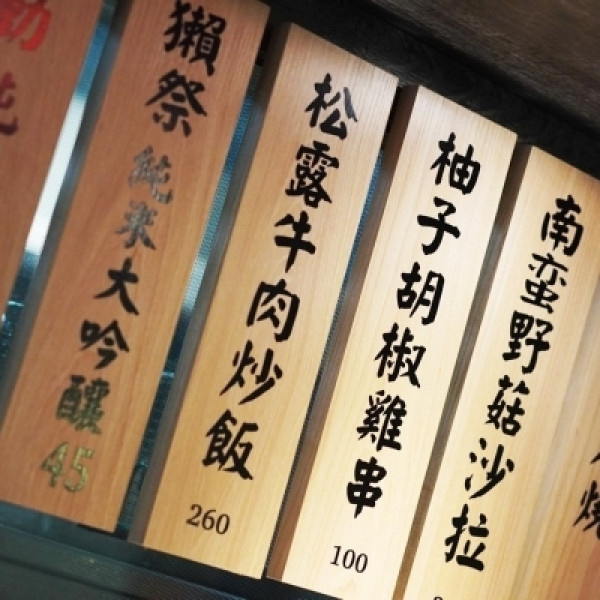 獺祭 純米大吟釀 45
松露牛肉炒飯
260
柚子胡椒雞串
100
南蛮野菇沙拉
燒